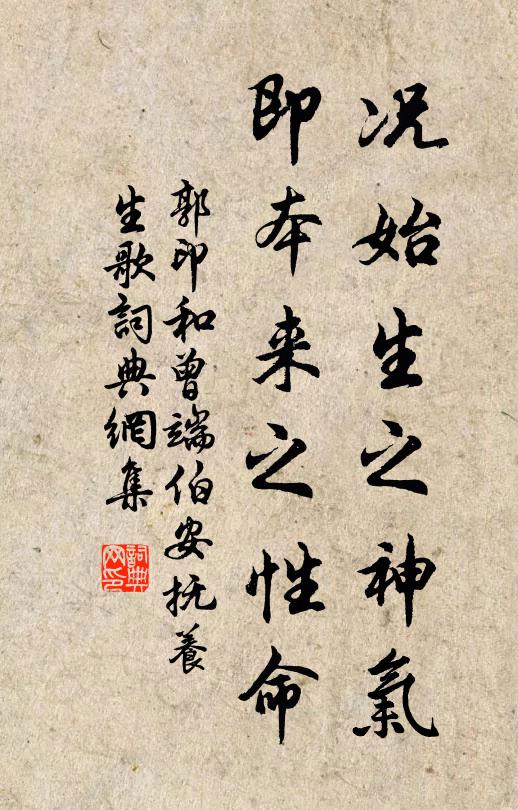 况始生之神氣
即本来之性命
郭印和曾端伯安抚養
生歌詞典網集
詞典
网印